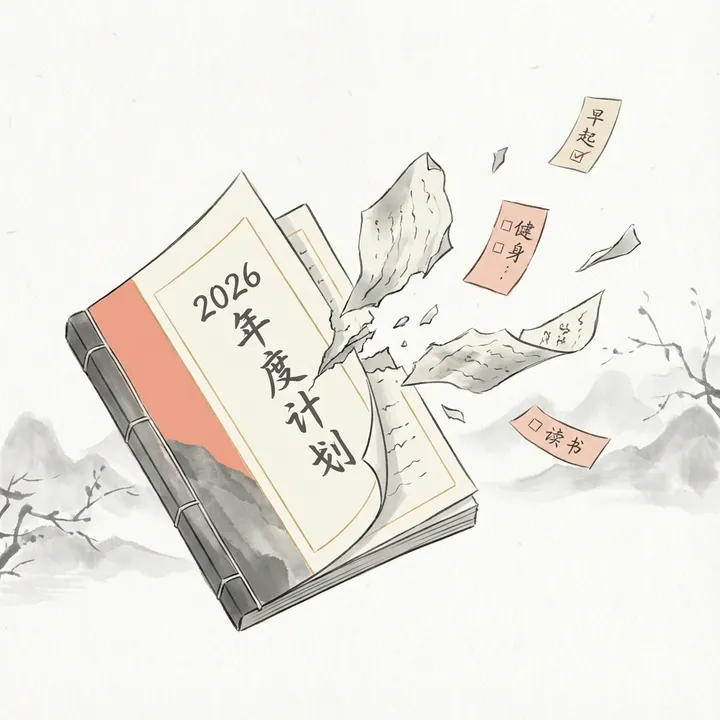 2026
年度计划
早起
☑
健身…
□
□
□ 读书